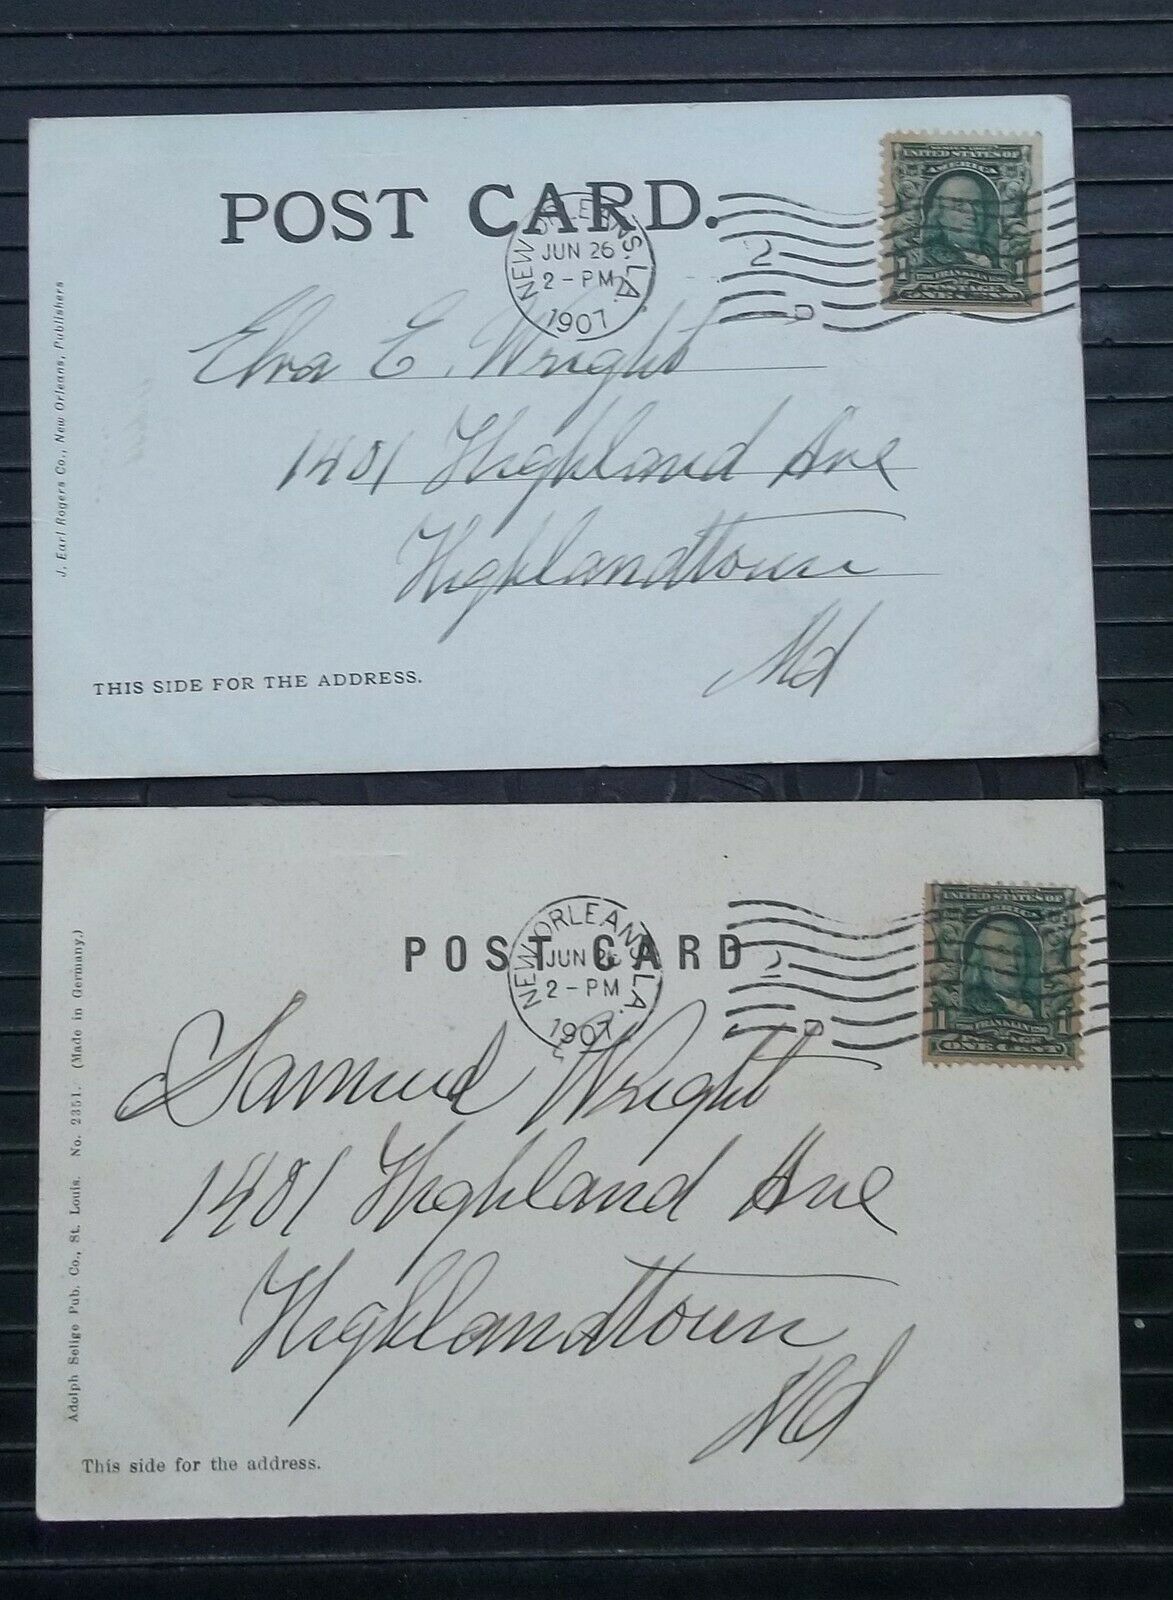 POST CARD.
NEW ORLEANS, LA.
JUN 26
2-PM
1907
2
UNITED STATES OF
AMERICA
1 FRANKLIN 1
POSTAGE
ONE CENT
Elva E. Wright
1401 Highland Ave
Highlandtown
Md
J. Earl Rogers Co., New Orleans, Publishers
THIS SIDE FOR THE ADDRESS.
POST CARD
NEW ORLEANS, LA.
JUN 26
2-PM
1907
2
UNITED STATES OF
AMERICA
1 FRANKLIN 1
POSTAGE
ONE CENT
Samuel Wright
1401 Highland Ave
Highlandtown
Md
Adolph Selige Pub. Co., St. Louis. No. 2351. (Made in Germany.)
This side for the address.